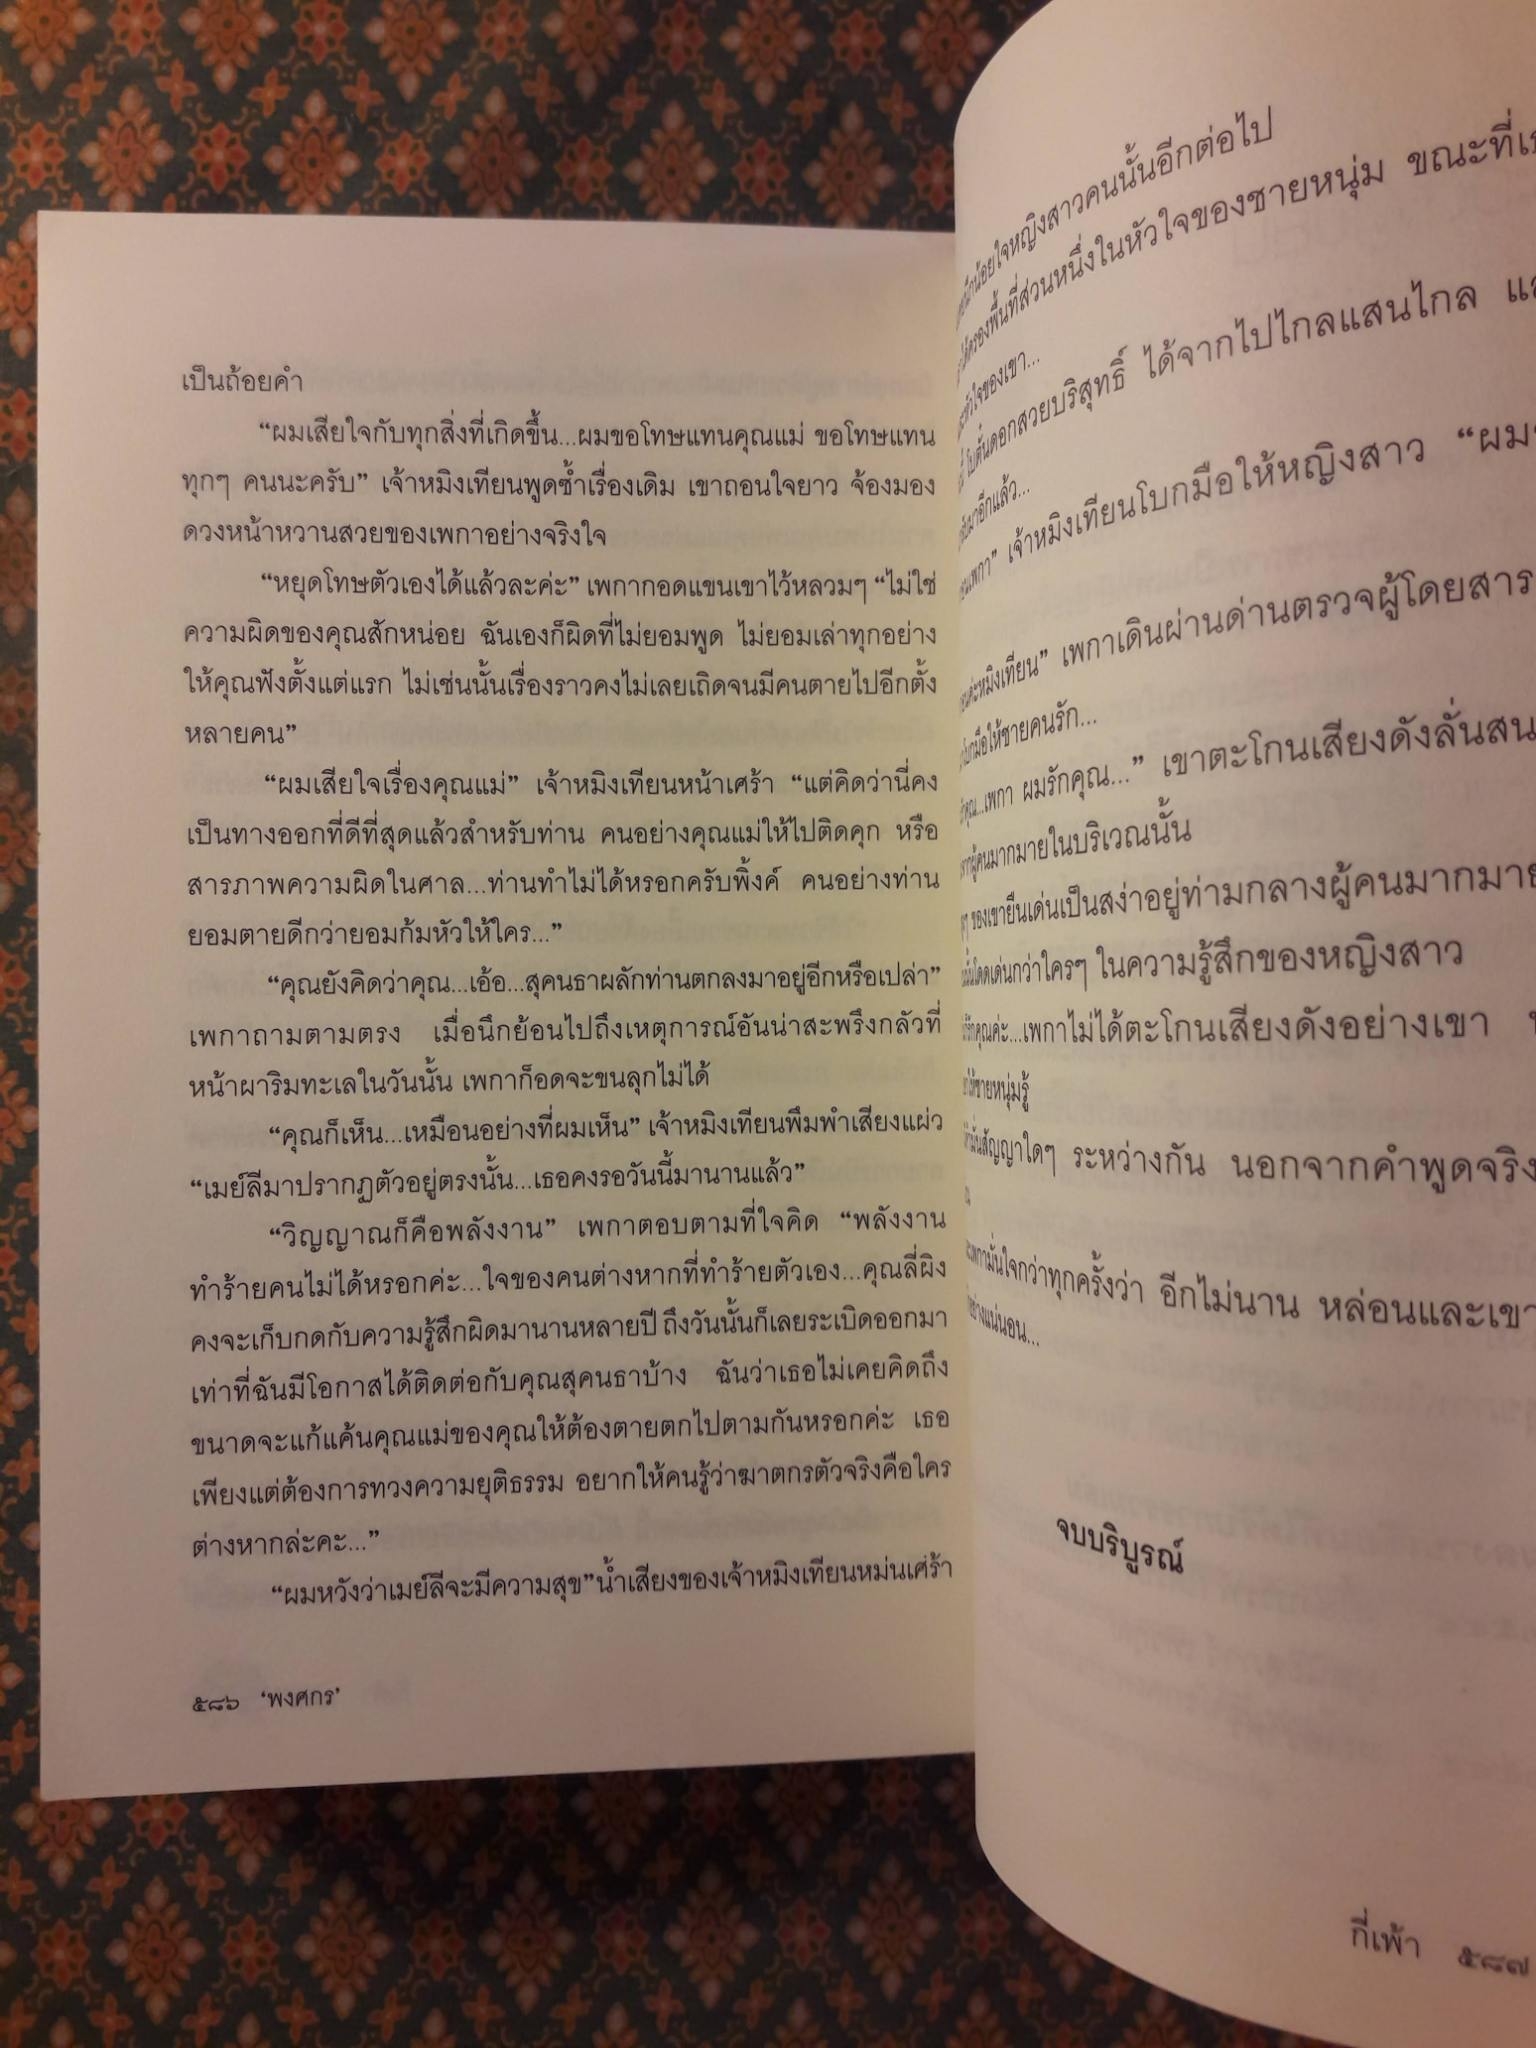 เป็นถ้อยคำ
“ผมเสียใจกับทุกสิ่งที่เกิดขึ้น...ผมขอโทษแทนคุณแม่ ขอโทษแทน
ทุกๆ คนนะครับ” เจ้าหมิงเทียนพูดซ้ำเรื่องเดิม เขาถอนใจยาว จ้องมอง
ดวงหน้าหวานสวยของเพกาอย่างจริงใจ
“หยุดโทษตัวเองได้แล้วละค่ะ” เพกากอดแขนเขาไว้หลวมๆ “ไม่ใช่
ความผิดของคุณสักหน่อย ฉันเองก็ผิดที่ไม่ยอมพูด ไม่ยอมเล่าทุกอย่าง
ให้คุณฟังตั้งแต่แรก ไม่เช่นนั้นเรื่องราวคงไม่เลยเถิดจนมีคนตายไปอีกตั้ง
หลายคน”
“ผมเสียใจเรื่องคุณแม่” เจ้าหมิงเทียนหน้าเศร้า “แต่คิดว่านี่คง
เป็นทางออกที่ดีที่สุดแล้วสำหรับท่าน คนอย่างคุณแม่ให้ไปติดคุก หรือ
สารภาพความผิดในศาล...ท่านทำไม่ได้หรอกครับพิ้งค์ คนอย่างท่าน
ยอมตายดีกว่ายอมก้มหัวให้ใคร...”
“คุณยังคิดว่าคุณ...เอ้อ...สุคนธาผลักท่านตกลงมาอยู่อีกหรือเปล่า”
เพกาถามตามตรง เมื่อนึกย้อนไปถึงเหตุการณ์อันน่าสะพรึงกลัวที่
หน้าผาริมทะเลในวันนั้น เพกาก็อดจะขนลุกไม่ได้
“คุณก็เห็น...เหมือนอย่างที่ผมเห็น” เจ้าหมิงเทียนพึมพำเสียงแผ่ว
“เมย์ลีมาปรากฏตัวอยู่ตรงนั้น...เธอคงรอวันนี้มานานแล้ว”
“วิญญาณก็คือพลังงาน” เพกาตอบตามที่ใจคิด “พลังงาน
ทำร้ายคนไม่ได้หรอกค่ะ...ใจของคนต่างหากที่ทำร้ายตัวเอง...คุณลี่ผิง
คงจะเก็บกดกับความรู้สึกผิดมานานหลายปี ถึงวันนั้นก็เลยระเบิดออกมา
เท่าที่ฉันมีโอกาสได้ติดต่อกับคุณสุคนธาบ้าง ฉันว่าเธอไม่เคยคิดถึง
ขนาดจะแก้แค้นคุณแม่ของคุณให้ต้องตายตกไปตามกันหรอกค่ะ เธอ
เพียงแต่ต้องการทวงความยุติธรรม อยากให้คนรู้ว่าฆาตกรตัวจริงคือใคร
ต่างหากล่ะคะ...”
“ผมหวังว่าเมย์ลีจะมีความสุข”น้ำเสียงของเจ้าหมิงเทียนหม่นเศร้า
๕๘๖ ‘พงศกร’
น้อยใจหญิงสาวคนนั้นอีกต่อไป
ครองพื้นที่ส่วนหนึ่งในหัวใจของชายหนุ่ม ขณะที่
หัวใจของเขา...
ดอกสวยบริสุทธิ์ ได้จากไปไกลแสนไกล
มาอีกแล้ว...
เพกา” เจ้าหมิงเทียนโบกมือให้หญิงสาว
หมิงเทียน” เพกาเดินผ่านด่านตรวจผู้โดยสาร
โบกมือให้ชายคนรัก...
คุณ...เพกา ผมรักคุณ...” เขาตะโกนเสียงดังลั่น
ผู้คนมากมายในบริเวณนั้น
ของเขายืนเด่นเป็นสง่าอยู่ท่ามกลางผู้คนมากมาย
โดดเด่นกว่าใครๆ ในความรู้สึกของหญิงสาว
รักคุณค่ะ...เพกาไม่ได้ตะโกนเสียงดังอย่างเขา
ให้ชายหนุ่มรู้
มั่นสัญญาใดๆ ระหว่างกัน นอกจากคำพูดจริง
เพกามั่นใจกว่าทุกครั้งว่า อีกไม่นาน หล่อนและเขา
อย่างแน่นอน...
จบบริบูรณ์
กี่เพ้า ๕๘๗